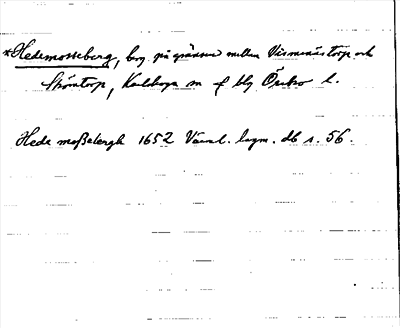 *Hedemosseberg, berg på gränsen mellan Vismenästorp och
Strömtorp, Karlskoga sn o bsl Örebro l.
Hede moßebergh 1652 Värml. lagm. db s. 56.